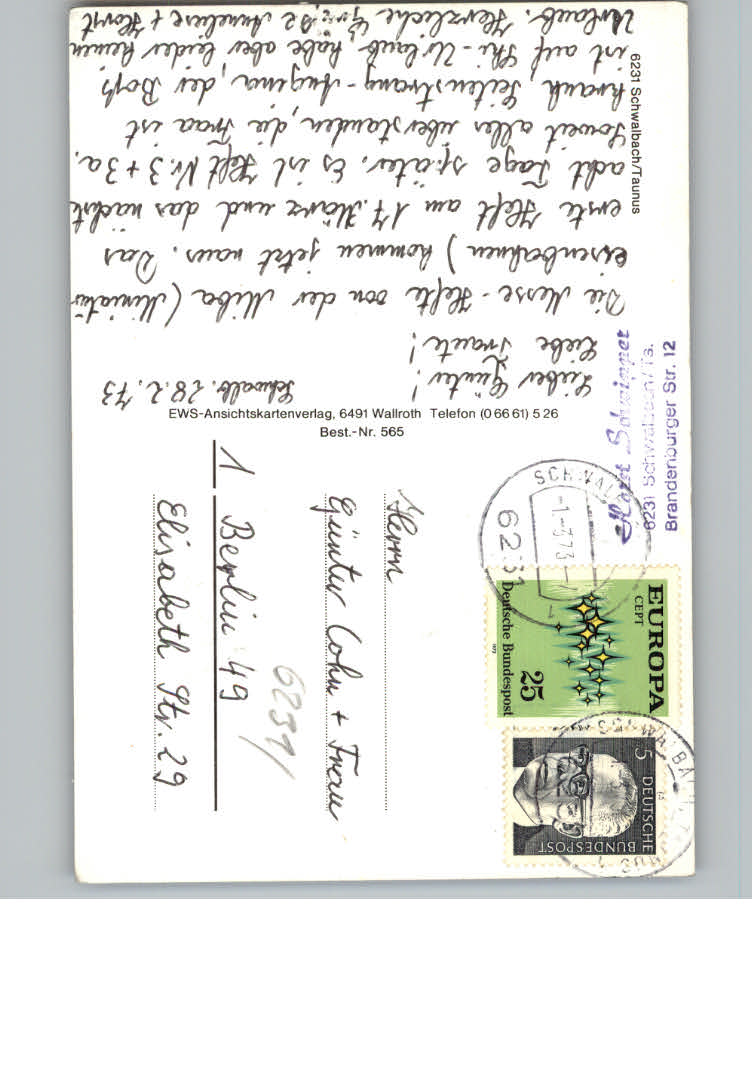 Schwalb. 28.2.73
Lieber Günter!
Liebe Traute!
Die Messe-Hefte von der Miba (Miniatur
eisenbahnen) kommen jetzt raus. Das
erste Heft am 17. März und das nächste
acht Tage später. Es ist Heft Nr. 3 + 3a.
Soweit alles überstanden, die Fraa ist
krank, Seitenstrang-Angina, der Boß
ist auf Ski-Urlaub habe aber leider keinen
Urlaub. Herzliche Grüße Annelise + Horst
6231 Schwalbach/Taunus
EWS-Ansichtskartenverlag, 6491 Wallroth Telefon (0 66 61) 5 26
Best.-Nr. 565
Horst Schwipper
6231 Schwalbach/Ts.
Brandenburger Str. 12
SCHWALB
-1.-3.73-
6231
EUROPA
CEPT
25
Deutsche Bundespost
1972
5
DEUTSCHE
BUNDESPOST
Herrn
Günter Cohn + Frau
6239/
1 Berlin 49
Elisabeth Str. 29